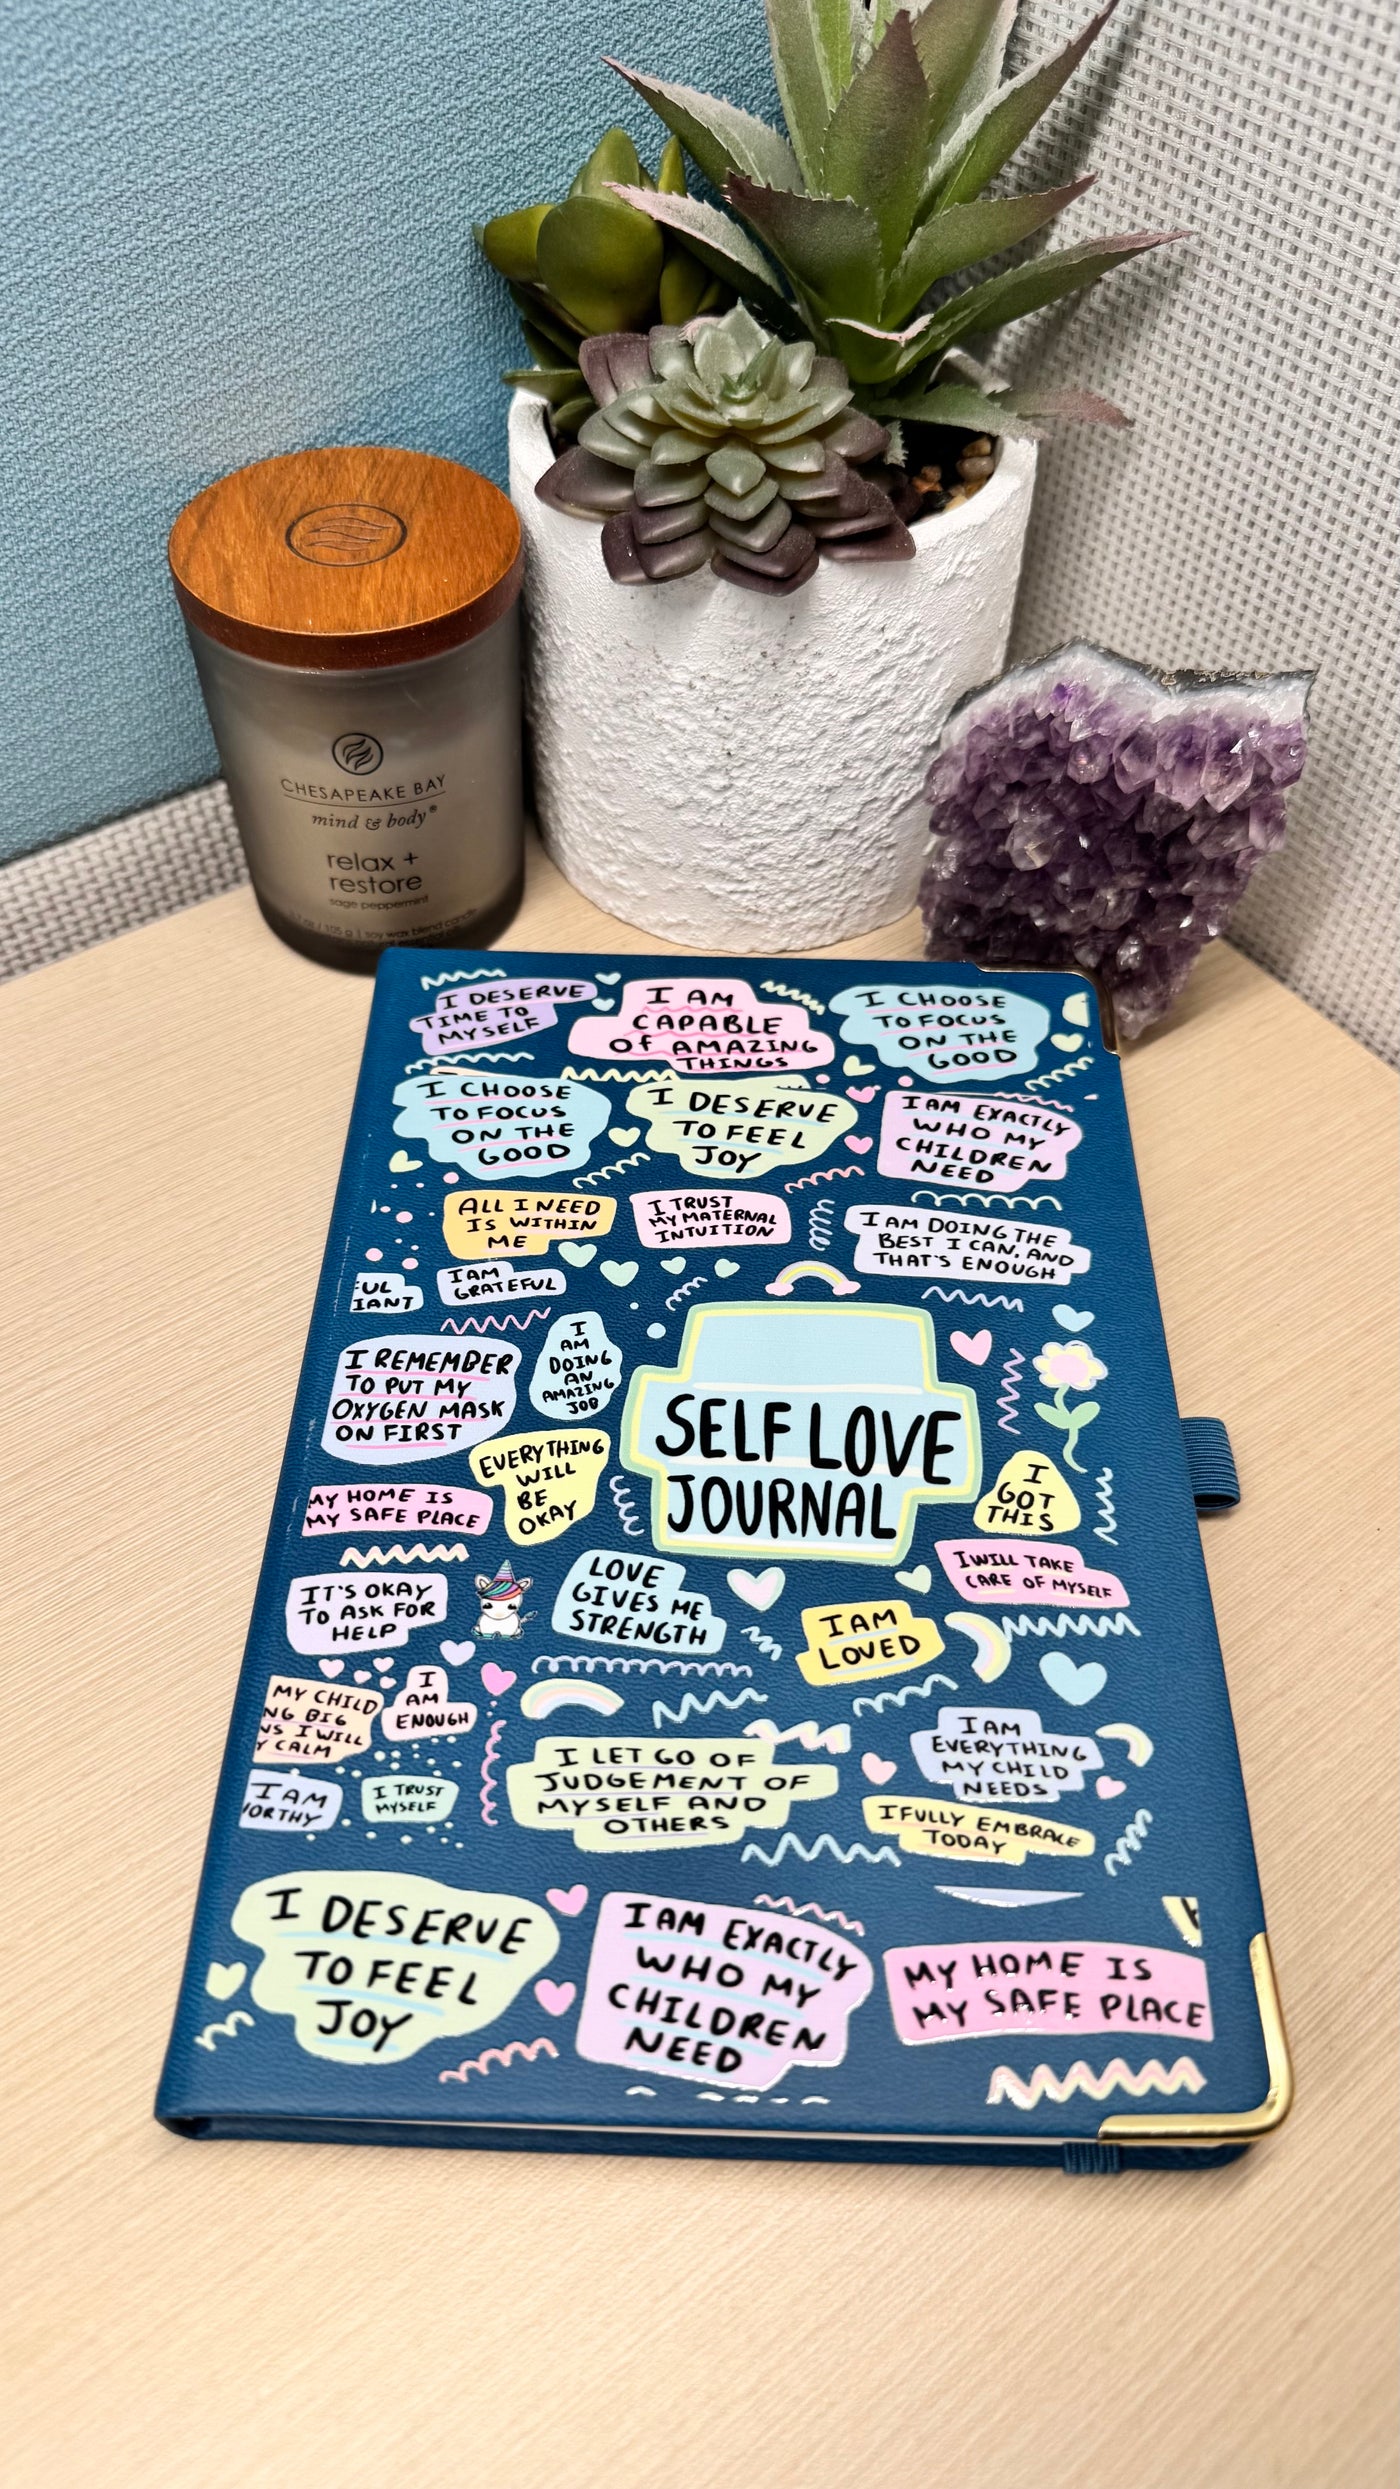 CHESAPEAKE BAY
mind & body®
relax +
restore
sage peppermint
105 g | soy wax blend candle
I DESERVE
TIME TO
MYSELF
I AM
CAPABLE
Of AMAZING
THINGS
I CHOOSE
TO FOCUS
ON THE
GOOD
I CHOOSE
TO FOCUS
ON THE
GOOD
I DESERVE
TO FEEL
JOY
I AM EXACTLY
WHO MY
CHILDREN
NEED
ALL I NEED
IS WITHIN
ME
I TRUST
MY MATERNAL
INTUITION
I AM DOING THE
BEST I CAN, AND
THAT'S ENOUGH
UL
IANT
I AM
GRATEFUL
I REMEMBER
TO PUT MY
OXYGEN MASK
ON FIRST
I
AM
DOING
AN
AMAZING
JOB
SELF LOVE
JOURNAL
EVERYTHING
WILL
BE
OKAY
I
GOT
THIS
MY HOME IS
MY SAFE PLACE
I WILL TAKE
CARE OF MYSELF
IT'S OKAY
TO ASK FOR
HELP
LOVE
GIVES ME
STRENGTH
I AM
LOVED
MY CHILD
NG BIG
NS I WILL
Y CALM
I
AM
ENOUGH
I AM
ORTHY
I TRUST
MYSELF
I LET GO OF
JUDGEMENT OF
MYSELF AND
OTHERS
I AM
EVERYTHING
MY CHILD
NEEDS
I FULLY EMBRACE
TODAY
I DESERVE
TO FEEL
JOY
I AM EXACTLY
WHO MY
CHILDREN
NEED
MY HOME IS
MY SAFE PLACE